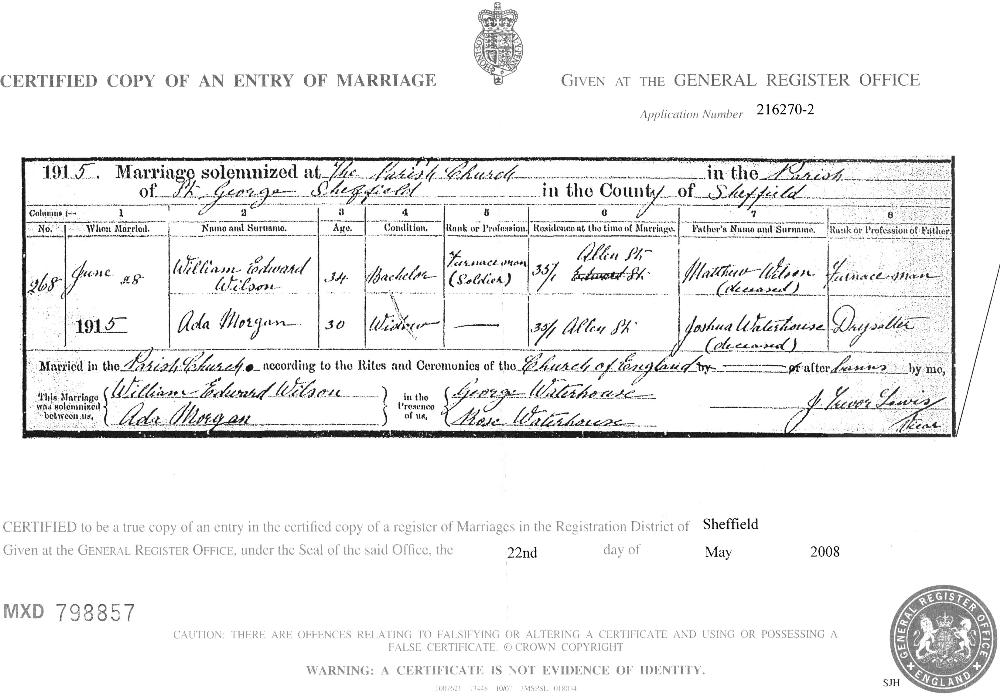 CERTIFIED COPY OF AN ENTRY OF MARRIAGE
GIVEN AT THE GENERAL REGISTER OFFICE
Application Number 216270-2
1915. Marriage solemnized at The Parish Church in the Parish
of St. George Sheffield in the County of Sheffield
Columns :— 1 2 3 4 5 6 7 8
No. When Married. Name and Surname. Age. Condition. Rank or Profession. Residence at the time of Marriage. Father's Name and Surname. Rank or Profession of Father.
268 June 28 1915
William Edward Wilson 34 Bachelor Furnace man (Soldier) 35/1 Allen St. Edward St. Matthew Wilson (deceased) Furnace man
Ada Morgan 30 Widow — 35/1 Allen St. Joshua Waterhouse (deceased) Drysalter
Married in the Parish Church according to the Rites and Ceremonies of the Church of England by — or after banns by me,
This Marriage was solemnized between us, William Edward Wilson
Ada Morgan
in the Presence of us, George Waterhouse
Rose Waterhouse
J Trevor Lewis
Vicar
CERTIFIED to be a true copy of an entry in the certified copy of a register of Marriages in the Registration District of Sheffield
Given at the GENERAL REGISTER OFFICE, under the Seal of the said Office, the 22nd day of May 2008
MXD 798857
CAUTION: THERE ARE OFFENCES RELATING TO FALSIFYING OR ALTERING A CERTIFICATE AND USING OR POSSESSING A
FALSE CERTIFICATE. © CROWN COPYRIGHT
WARNING: A CERTIFICATE IS NOT EVIDENCE OF IDENTITY.
SJH
GENERAL REGISTER OFFICE
ENGLAND